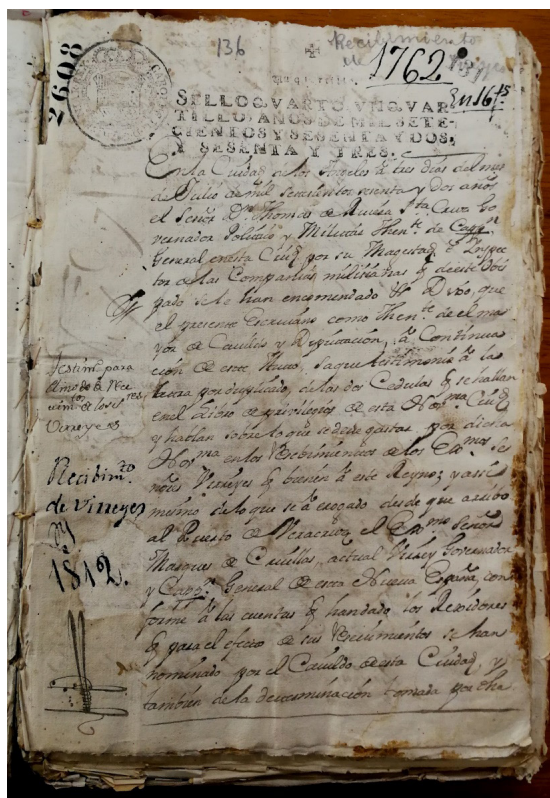 136
Recibimiento
de
1762
2608
SELLO QVARTO, VN QVAR-
TILLO, AÑOS DE MIL SETE-
CIENTOS Y SESENTA Y DOS,
Y SESENTA Y TRES.
En la Ciudad de los Angeles à tres dias del mes
de Julio de mil setecientos sesenta y dos años
el Señor Dn. Thomas de Sta. Cruz Go
vernador Politico y Militar Thente. de Cappn.
General en esta Ciud. por su Magestad, è Inspec
tor de las Compañias milicianas q̃ de este Obis
pado se le han encomendado Dixo, que
el presente Escrivano como Thente. de el ma
yor de Cavildo y Diputacion, à Continua
cion de este Auto, saque testimonio à la
letra por duplicado, de las dos Cedulas q̃ se hallan
en el de privilegios de esta Novma. Ciud.
y hablan sobre lo que se deve gastar, por dicha
Novma. en los Recivimientos de los Exmos. Se
ñores Virreyes q̃ vienen à este Reyno; y assi
mismo de lo que se à desde que arribo
al Puerto de Veracruz el Exmo. Señor
Marques de Cruillas, actual Virrey Governador
y Cappn. General de esta Nueva España, con
forme à las cuentas q̃ han dado los Rexidores
q̃ para el efecto de sus Recivimientos se han
nominado por el Cavildo de esta Ciudad, y
tambien de la determinacion tomada por dha
Testimo. para
Virreyes
Recibimto.
de Virreyes
1812.